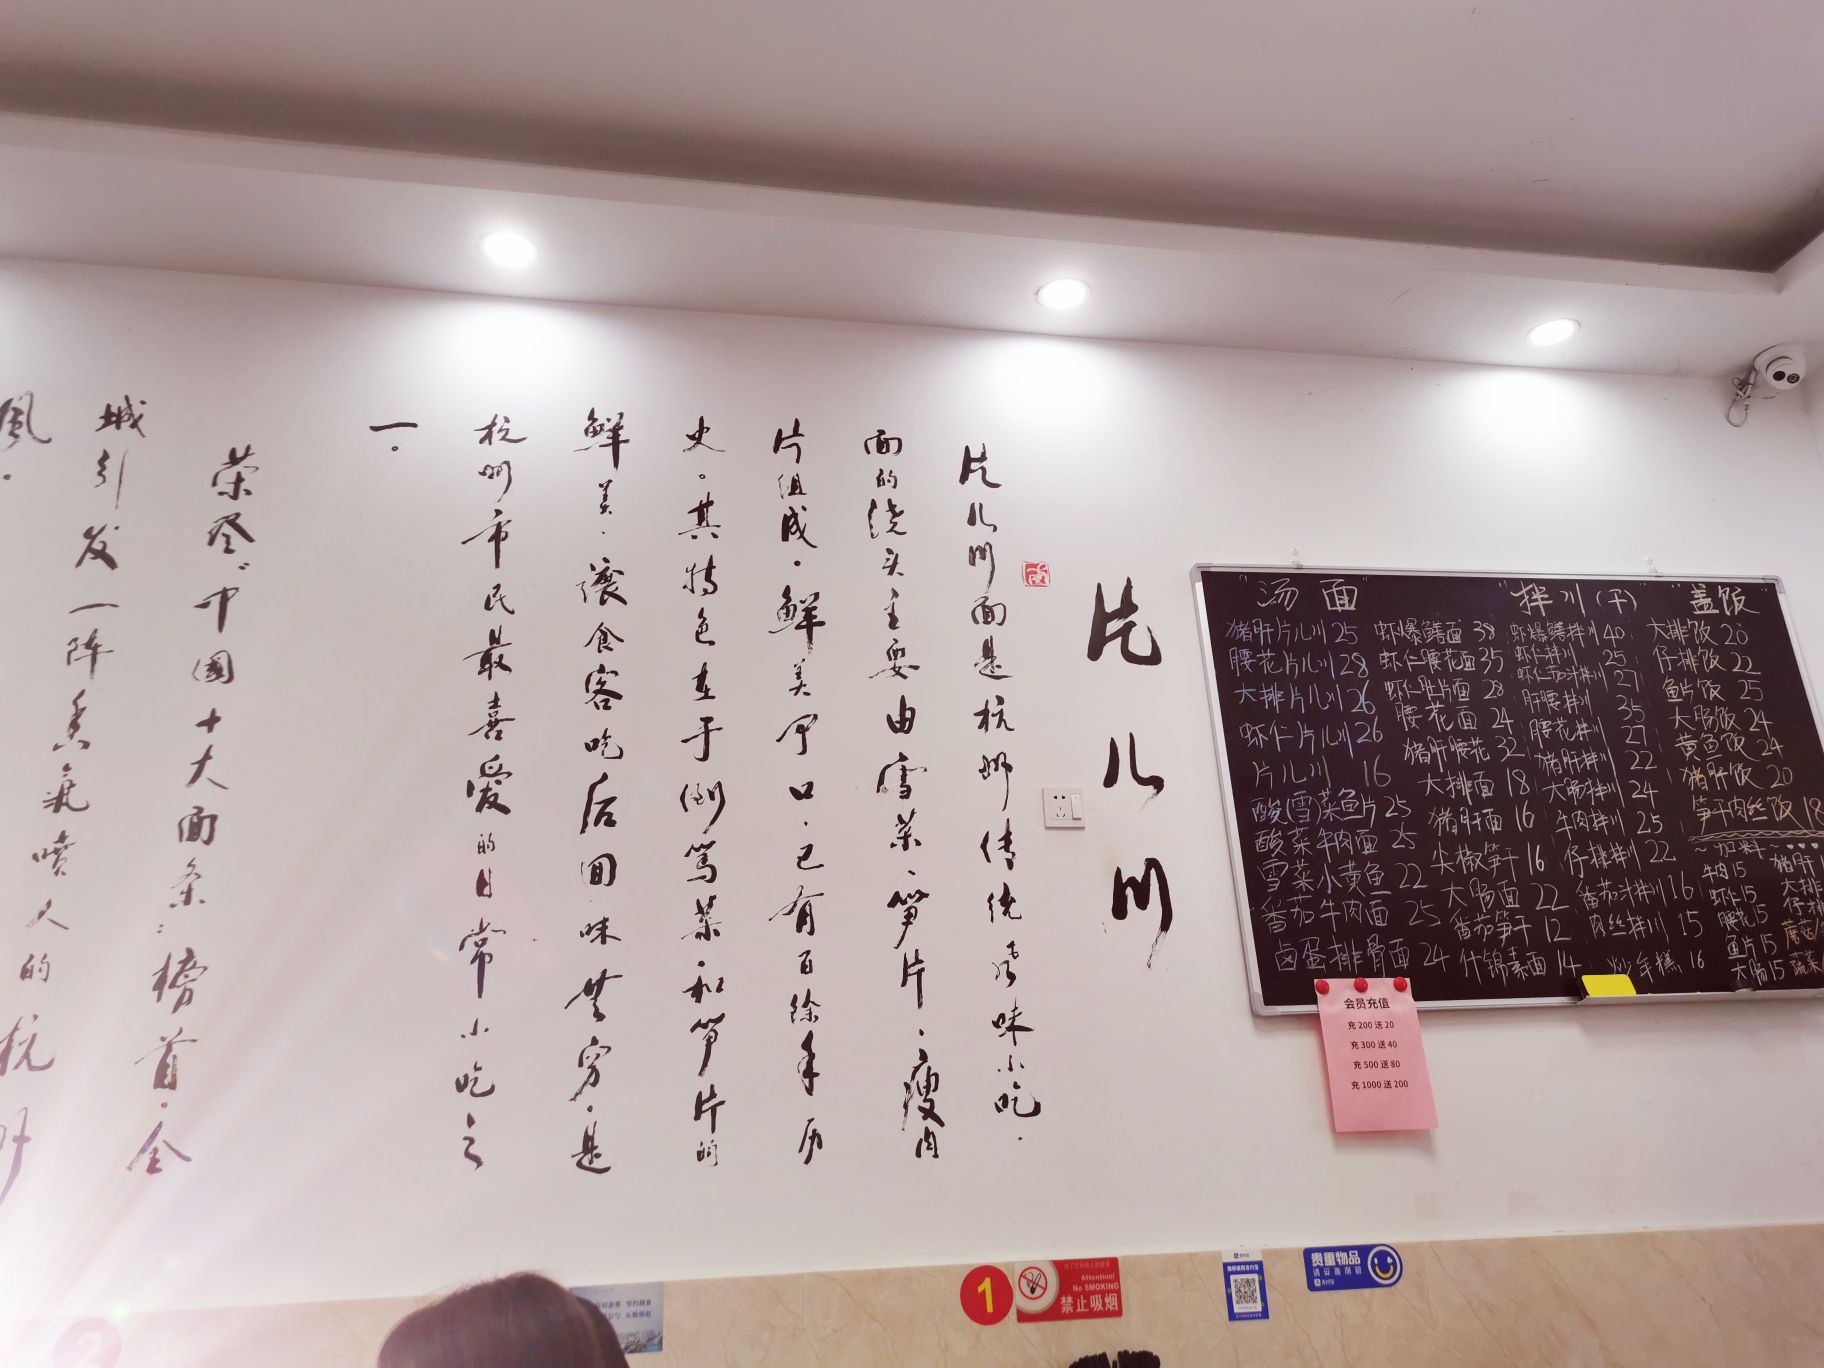 片儿川
片儿川面是杭州传统风味小吃.
面的浇头主要由雪菜、笋片、瘦肉
片组成.鲜美可口.已有百余年历
史。其特色在于倒笃菜和笋片的
鲜美.让食客吃后回味无穷.是
杭州市民最喜爱的日常小吃之
一。
荣登“中國十大面条”榜首.全
城引发一阵香氣喷人的杭州
風.
"汤面"
猪肝片儿川 25
腰花片儿川 28
大排片儿川 26
虾仁片儿川 26
片儿川 16
酸(雪)菜鱼片 25
酸菜牛肉面 25
雪菜小黄鱼 22
番茄牛肉面 25
卤蛋排骨面 24
虾爆鳝面 38
虾仁腰花面 35
虾仁肚片面 28
腰花面 24
猪肝腰花 32
大排面 18
猪肝面 16
尖椒笋干 16
大肠面 22
番茄笋干 12
什锦素面 14
"拌川(干)"
虾爆鳝拌川 40
虾仁拌川 25
虾仁茄汁拌川 27
肝腰拌川 35
腰花拌川 27
猪肝拌川 22
大肠拌川 24
牛肉拌川 25
仔排拌川 22
番茄汁拌川 16
肉丝拌川 15
炒年糕 16
"盖饭"
大排饭 20
仔排饭 22
鱼片饭 25
大肠饭 24
黄鱼饭 24
猪肝饭 20
笋干肉丝饭 18
加料
牛肉 15
虾仁 15
腰花 15
鱼片 15
大肠 15
猪肝
大排
仔排
蘑菇
蔬菜
会员充值
充 200 送 20
充 300 送 40
充 500 送 80
充 1000 送 200
1
Attention!
No SMOKING
禁止吸烟
贵重物品
请妥善保管
支付宝
2